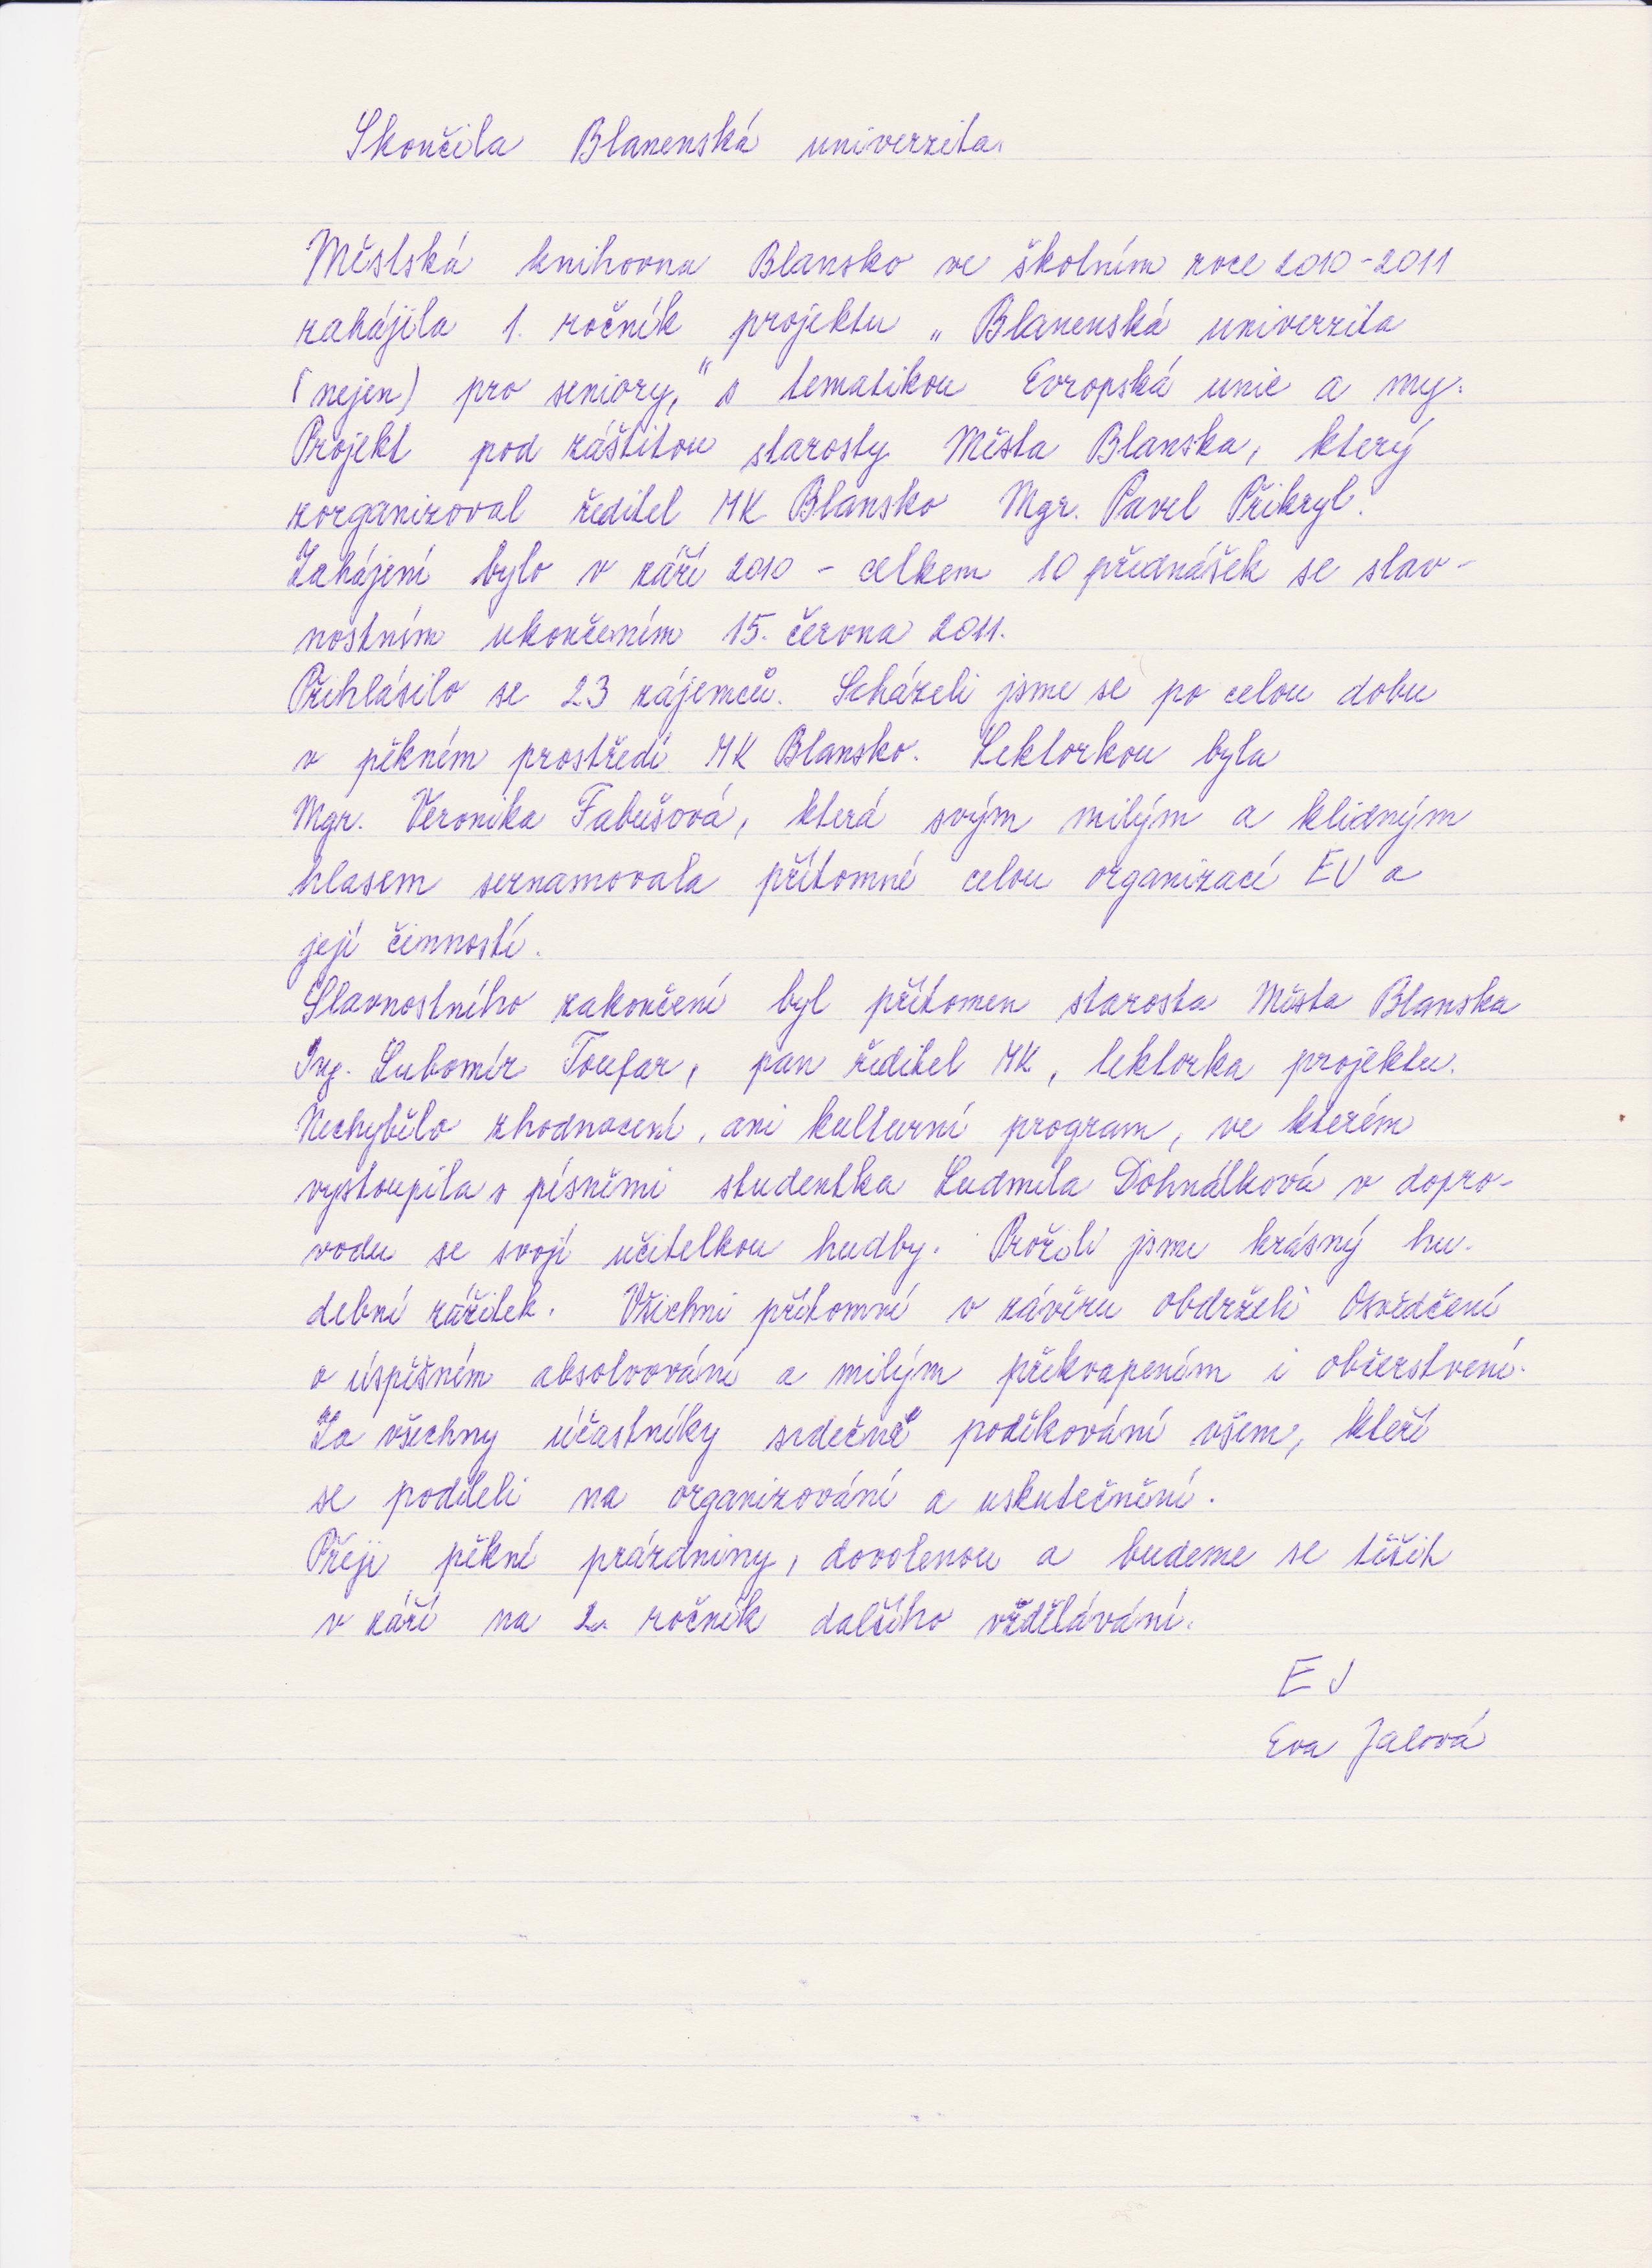 Skončila Blanenská univerzita.
Městská knihovna Blansko ve školním roce 2010-2011
zahájila 1. ročník projektu „Blanenská univerzita
(nejen) pro seniory," s tematikou Evropská unie a my.
Projekt pod záštitou starosty Města Blanska, který
zorganizoval ředitel MK Blansko Mgr. Pavel Přikryl.
Zahájení bylo v září 2010 - celkem 10 přednášek se slav-
nostním ukončením 15. června 2011.
Přihlásilo se 23 zájemců. Scházeli jsme se po celou dobu
v pěkném prostředí MK Blansko. Lektorkou byla
Mgr. Veronika Fabušová, která svým milým a klidným
hlasem seznamovala přítomné celou organizací EU a
její činností.
Slavnostního zakončení byl přítomen starosta Města Blanska
Ing. Lubomír Toufar, pan ředitel MK, lektorka projektu.
Nechybělo zhodnocení, ani kulturní program, ve kterém
vystoupila s písněmi studentka Ludmila Dohnálková v dopro-
vodu se svojí učitelkou hudby. Prožili jsme krásný hu-
dební zážitek. Všichni přítomní v závěru obdrželi Osvědčení
o úspěšném absolvování a milým překvapením i občerstvení.
Za všechny účastníky srdečné poděkování všem, kteří
se podíleli na organizování a uskutečnění.
Přeji pěkné prázdniny, dovolenou a budeme se těšit
v září na 2. ročník dalšího vzdělávání.
EJ
Eva Jalová